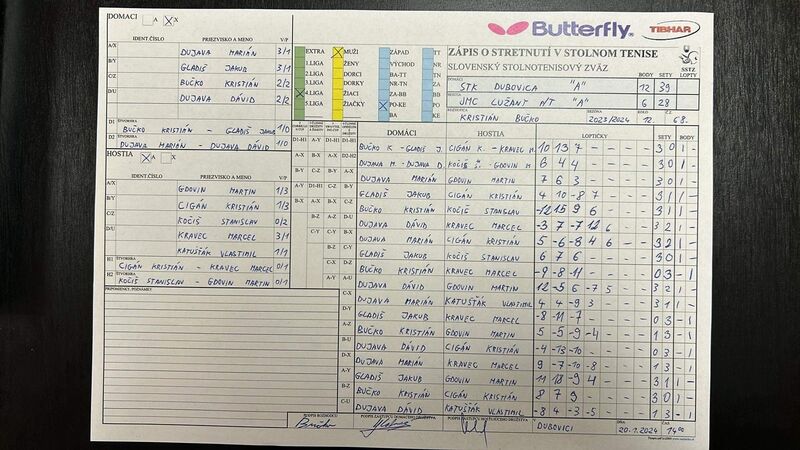 DOMACI A X
IDENT.ČÍSLO PRIEZVISKO A MENO V/P
A/X DUJAVA MARIÁN 3/1
B/Y GLADIŠ JAKUB 3/1
C/Z BUČKO KRISTIÁN 2/2
D/U DUJAVA DÁVID 2/2
D1 ŠTVORHRA BUČKO KRISTIÁN - GLADIŠ JAKUB 1/0
D2 ŠTVORHRA DUJAVA MARIÁN - DUJAVA DÁVID 1/0
HOSTIA A X
IDENT.ČÍSLO PRIEZVISKO A MENO V/P
A/X GDOVIN MARTIN 1/3
B/Y CIGÁN KRISTIÁN 1/3
C/Z KOČIŠ STANISLAV 0/2
KRAVEC MARCEL 3/1
KATUŠŤÁK VLASTIMIL 1/1
H1 ŠTVORHRA CIGÁN KRISTIÁN - KRAVEC MARCEL 0/1
H2 ŠTVORHRA KOČIŠ STANISLAV - GDOVIN MARTIN 0/1
PRIPOMIENKY, POZNÁMKY
EXTRA MUŽI ZÁPAD TT
1.LIGA ŽENY VÝCHOD NR
2.LIGA DORCI BA-TT TN
3.LIGA DORKY NR-TN ZA
4.LIGA ŽIACI ZA-BB BB
5.LIGA ŽIAČKY PO-KE PO
BA KE
Butterfly TIBHAR
ZÁPIS O STRETNUTÍ V STOLNOM TENISE
SLOVENSKÝ STOLNOTENISOVÝ ZVÄZ
SSTZ
BODY SETY LOPTY
DOMÁCI ŠTK DUBOVICA "A" 12 39
HOSTIA JMC LUŽANY N/T "A" 6 28
ROZHODCA KRISTIÁN BUČKO SEZÓNA 2023/2024 12. 68.
DOMÁCI HOSTIA LOPTIČKY SETY BODY
BUČKO K - GLADIŠ J. CIGÁN K - KRAVEC M. 10 13 7 - - 3 0 1 -
DUJAVA M - DUJAVA D KOČIŠ Š. - GDOVIN M 6 4 4 - - 3 0 1 -
DUJAVA MARIÁN GDOVIN MARTIN 7 6 3 - - 3 0 1 -
GLADIŠ JAKUB CIGÁN KRISTIÁN 4 10 -8 7 - 3 1 1 -
BUČKO KRISTIÁN KOČIŠ STANISLAV -12 15 9 6 - 3 1 1 -
DUJAVA DÁVID KRAVEC MARCEL -3 7 -7 12 6 3 2 1 -
DUJAVA MARIÁN CIGÁN KRISTIÁN 5 -6 -8 4 6 3 2 1 -
GLADIŠ JAKUB KOČIŠ STANISLAV 6 7 6 - - 3 0 1 -
BUČKO KRISTIÁN KRAVEC MARCEL -9 -8 -11 - - 0 3 - 1
DUJAVA DÁVID GDOVIN MARTIN 12 -5 6 -7 5 3 2 1 -
DUJAVA MARIÁN KATUŠŤÁK VLASTIMIL 4 4 -9 3 - 3 1 1 -
GLADIŠ JAKUB KRAVEC MARCEL -8 -11 -7 - - 0 3 - 1
BUČKO KRISTIÁN GDOVIN MARTIN 5 -5 -9 -4 - 1 3 - 1
DUJAVA DÁVID CIGÁN KRISTIÁN -4 -13 -10 - - 0 3 - 1
DUJAVA MARIÁN KRAVEC MARCEL 9 -7 -10 -8 - 1 3 - 1
GLADIŠ JAKUB GDOVIN MARTIN 11 13 -9 4 - 3 1 1 -
BUČKO KRISTIÁN CIGÁN KRISTIÁN 8 7 9 - - 3 0 1 -
DUJAVA DÁVID KATUŠŤÁK VLASTIMIL -8 4 -3 -5 - 1 3 - 1
PODPIS ROZHODCU PODPIS ZÁSTUPCU DOMÁCEHO DRUŽSTVA PODPIS ZÁSTUPCU HOSŤUJÚCEHO DRUŽSTVA DUBOVICI DŇA 20.1.2024 ČAS 14:00